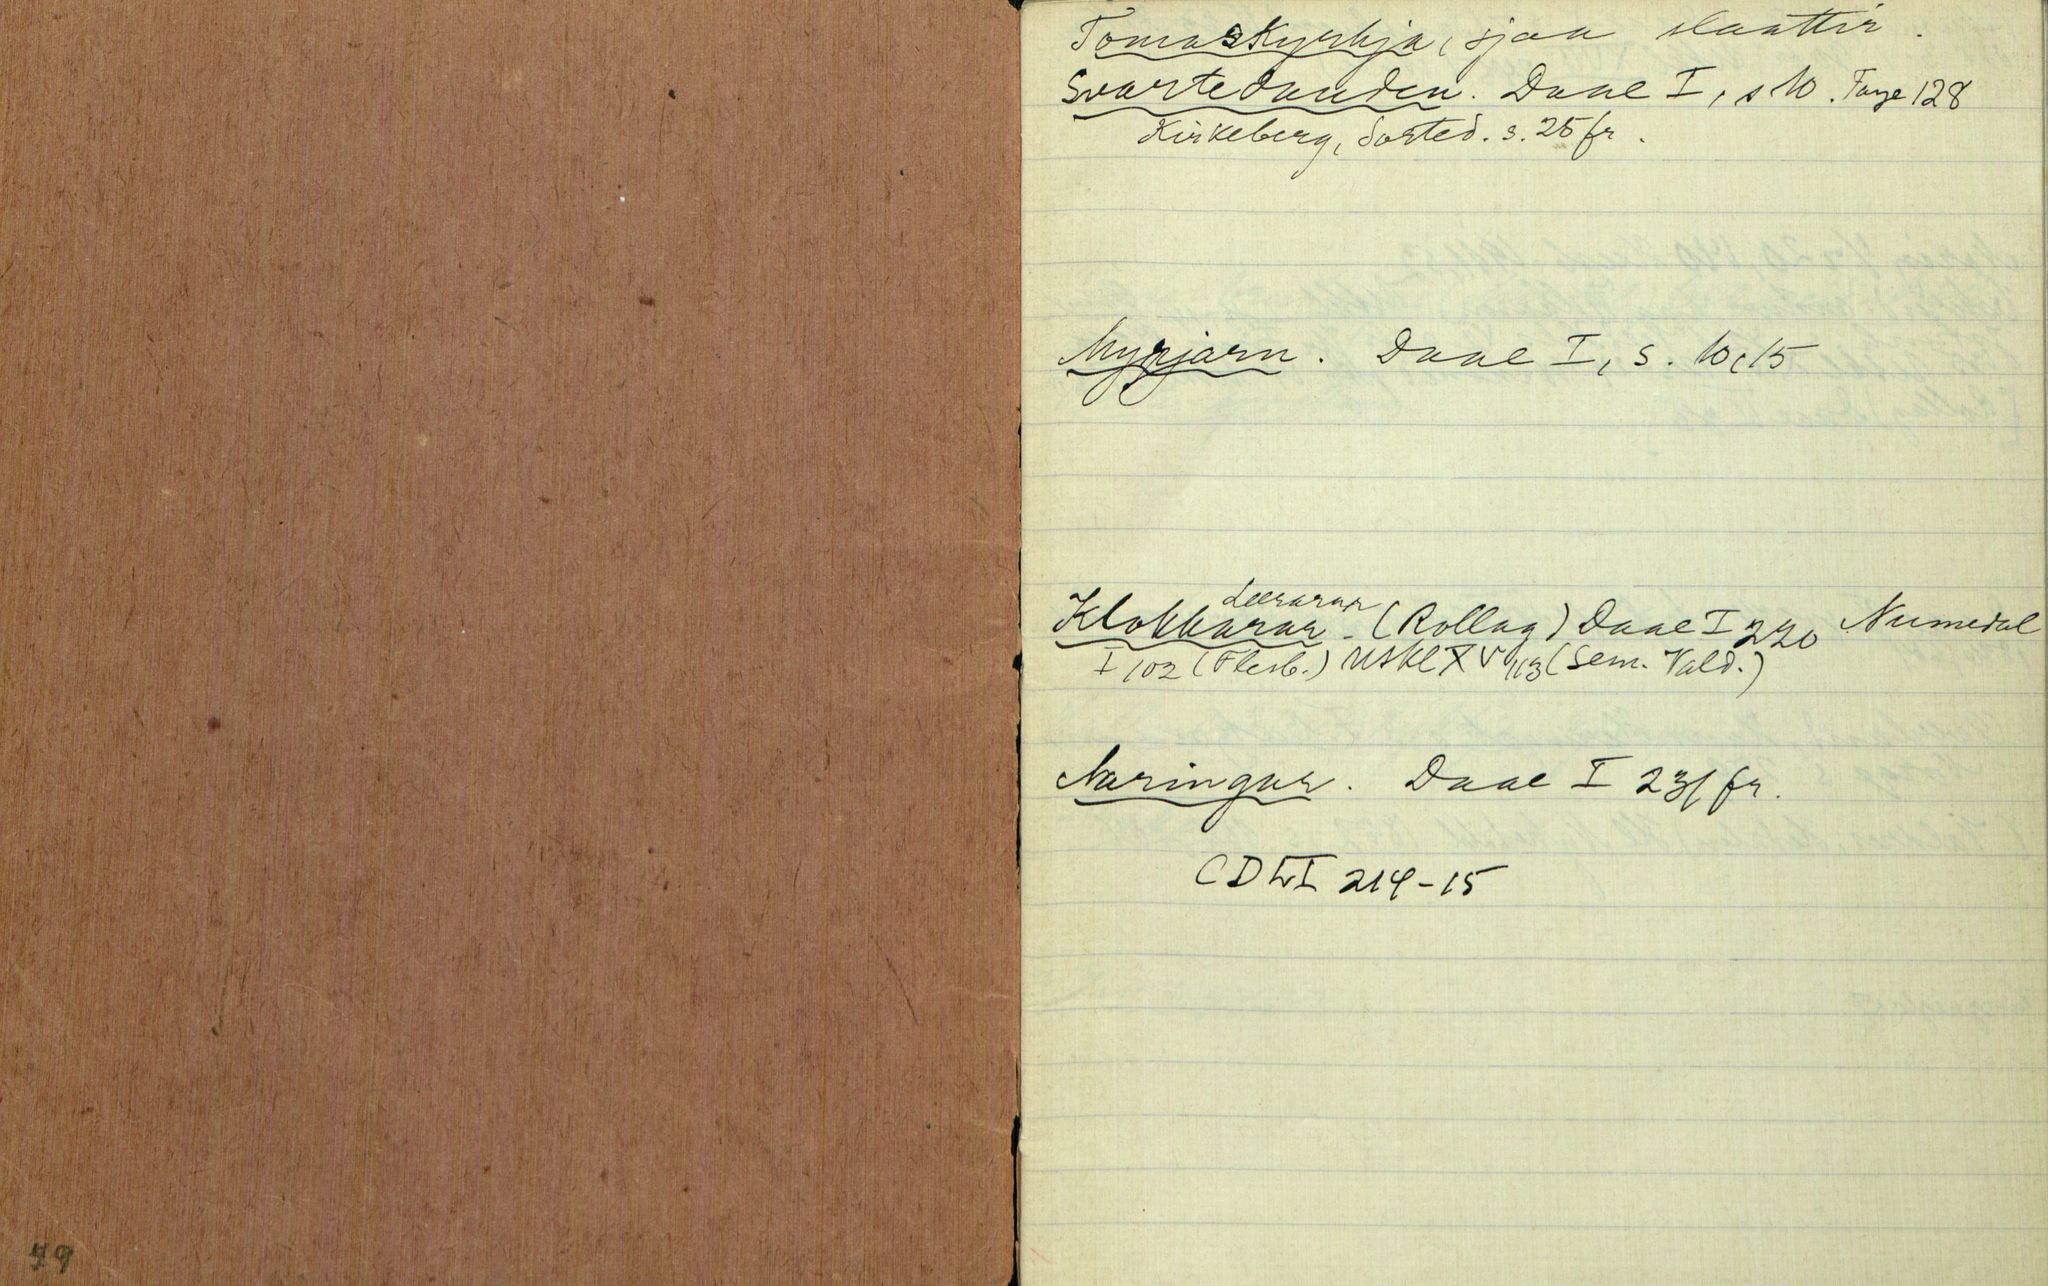 Tomaskyrkja, sjaa slaattir.
Svartedauden. Daae I, s 10. Faye 128
Kirkeberg, Sorted. s. 25 fr.
Myrjarn. Daae I, s. 10, 15
Lærarar
Klokkarar - (Rollag) Daae I 220 Numedal
I 102 (Flesb.) NSKL XV 113 (Sem. Vald.)
Næringar. Daae I 231 fr.
CDLI 214-15
59